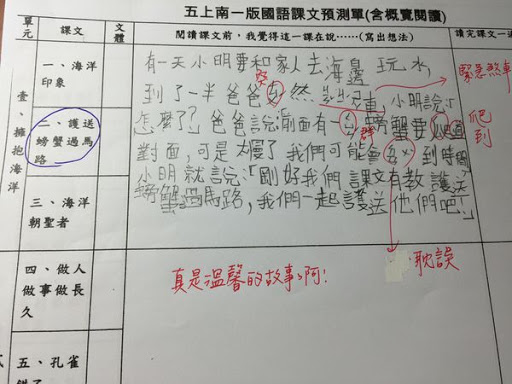 五上南一版國語課文預測單(含概覽閱讀)
單元
課文
文體
閱讀課文前，我覺得這一課在說……(寫出想法)
讀完課文
壹、擁抱海洋
一、海洋印象
二、護送螃蟹過馬路
三、海洋朝聖者
四、做人做事做長久
五、孔雀
有一天小明要和家人去海邊玩水，
到了一半爸爸 然 車，小明說：「
怎麼了?」爸爸說：前面有一 螃蟹要 過
對面，可是太慢了我們可能會 到時間
小明就說：「剛好我們課文有教護送
螃蟹過馬路，我們一起護送他們吧」
緊
群
緊急煞車
爬到
耽誤
真是溫馨的故事啊!